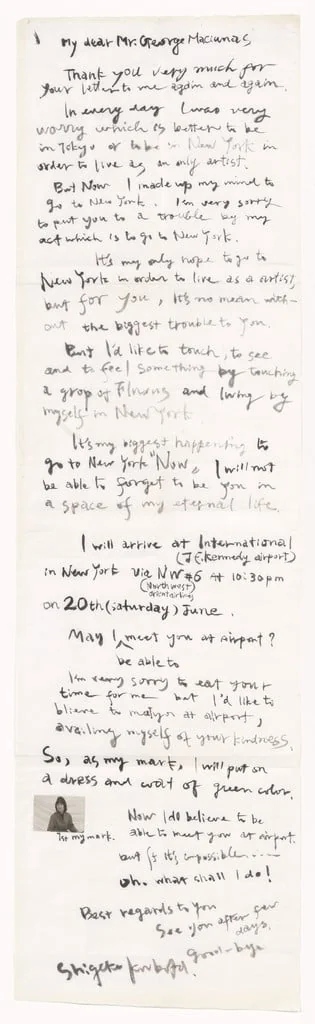 My dear Mr. George Maciunas
Thank you very much for
your letter to me again and again.
In every day I was very
worry which is better to be
in Tokyo or to be in New York in
order to live as an only artist.
But Now I made up my mind to
go to New York. I'm very sorry
to put you to a trouble by my
act which is to go to New York.
It's my only hope to go to
New York in order to live as a artist,
but for you, It's no mean with-
out the biggest trouble to you.
But I'd like to touch, to see
and to feel something by touching
a grop of Fluxus and living by
myself in New York
It's my biggest happening to
go to New York "Now", I will not
be able to forget to be you in
a space of my eternal life.
I will arrive at International
(J.F. Kennedy airport)
in New York via NW #6 at 10:30pm
(North west orient airlines)
on 20th (saturday) June.
May I meet you at airport?
be able to
I'm very sorry to eat your
time for me but I'd like to
blieve to you at airport,
availing myself of your kindness.
So, as my mark, I will put on
a dress and coat of green color.
my mark.
Now I do believe to be
able to meet you at airport.
but if It's impossible.....
oh. what shall I do!
Best regards to you
See you after
days.
good-bye
Shigeko Kubota.